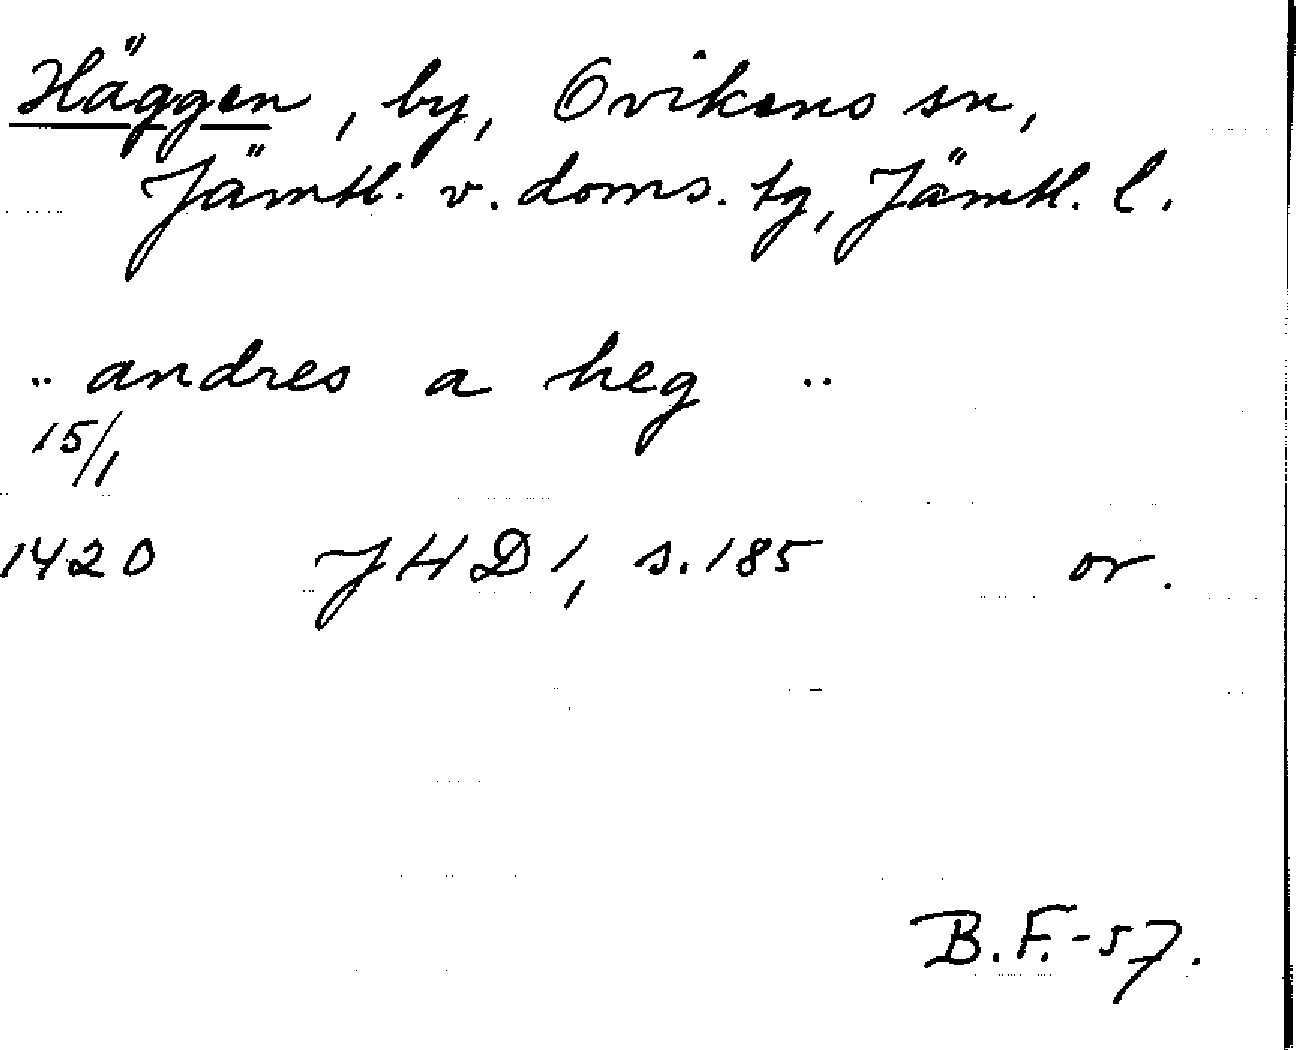 Häggen, by, Ovikens sn,
Jämtl. v. doms. tg, Jämtl. l.
.. andres a heg ..
15/1
1420 JHD 1, s. 185 or.
B. F. -57.